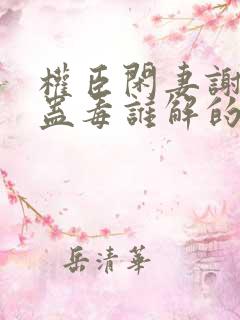 權臣閑妻謝
蓋毒誰解的
岳清華